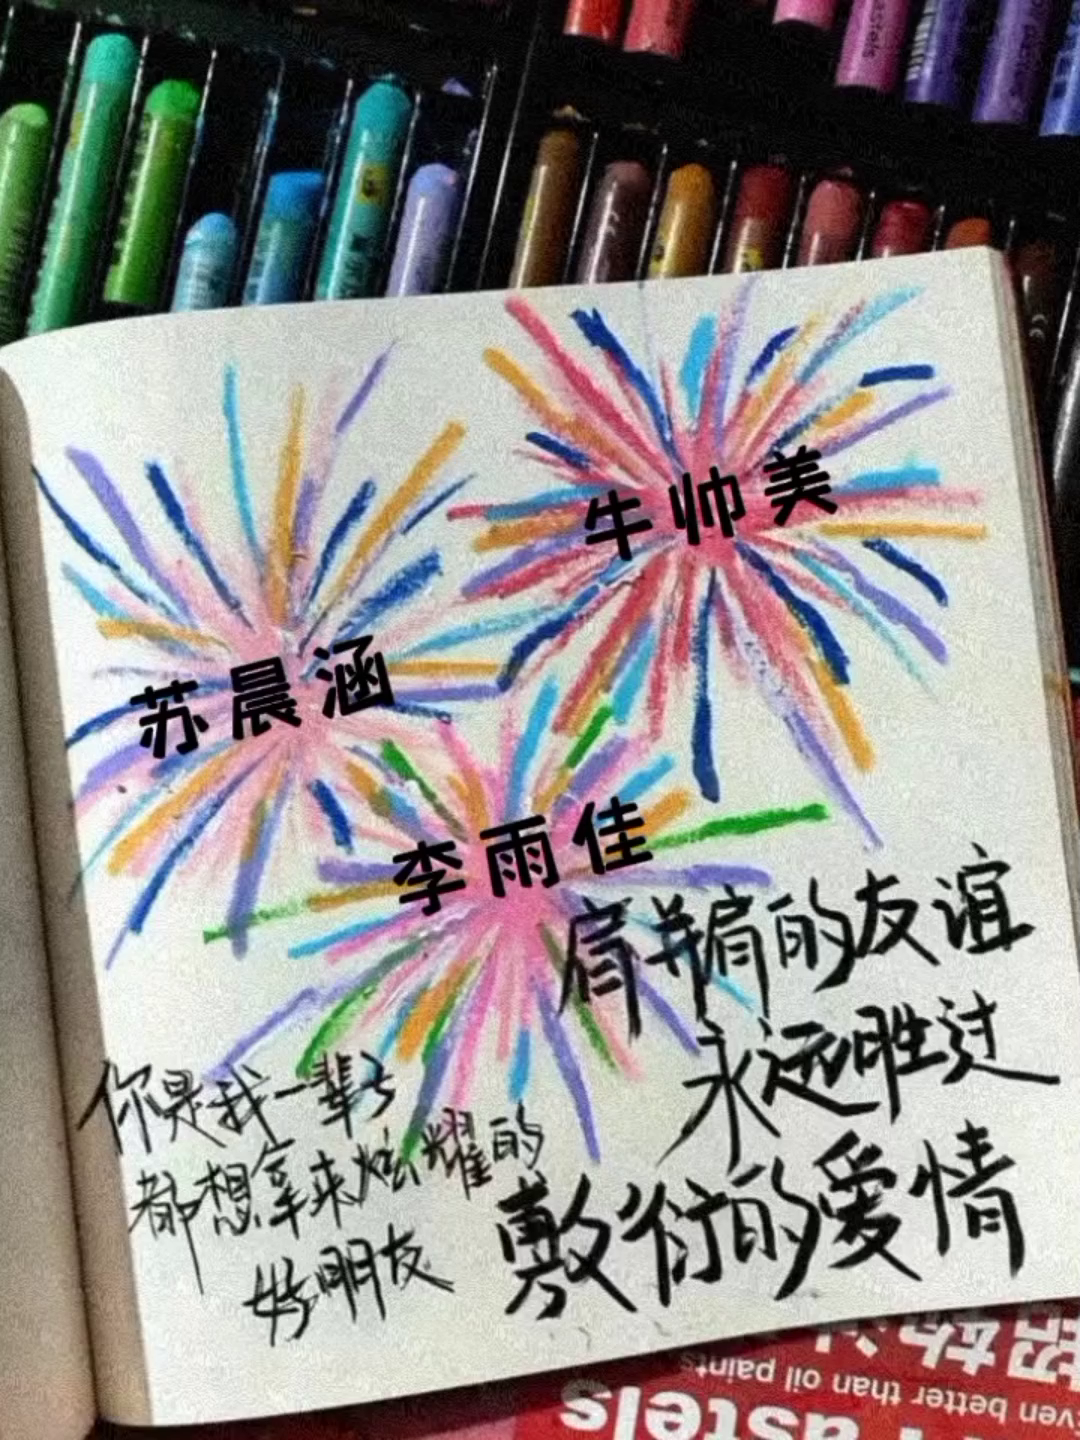 牛帅美
苏晨涵
李雨佳
肩并肩的友谊
永远胜过
敷衍的爱情
你是我一辈子
都想拿来炫耀的
好朋友
even better than oil paints
astels
pastels